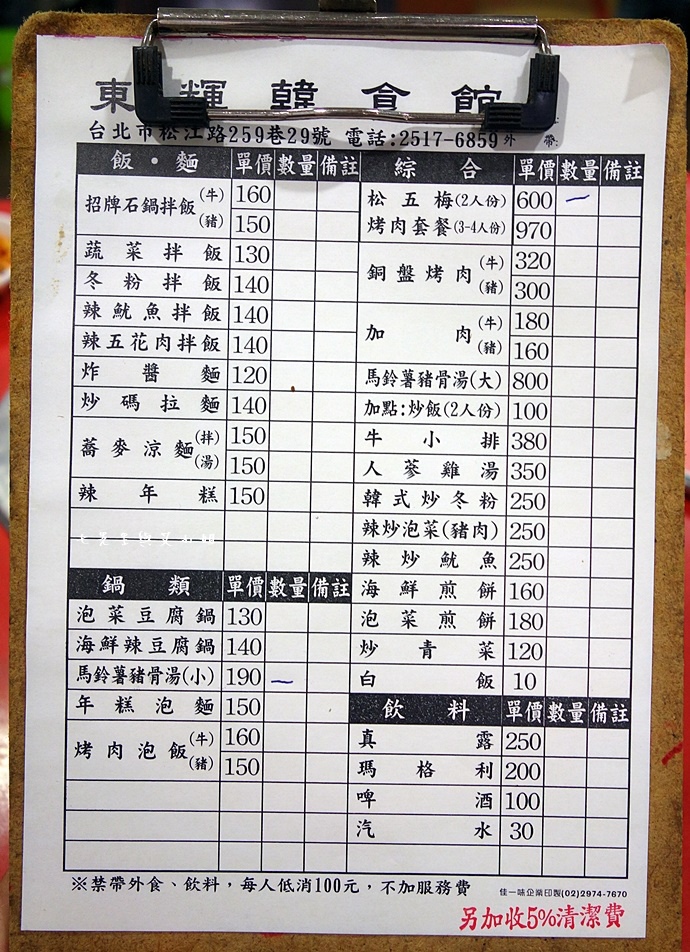 東輝韓食館
台北市松江路259巷29號 電話:2517-6859 外 帶:
飯·麵 單價 數量 備註
招牌石鍋拌飯 (牛) 160
(豬) 150
蔬菜拌飯 130
冬粉拌飯 140
辣魷魚拌飯 140
辣五花肉拌飯 140
炸醬麵 120
炒碼拉麵 140
蕎麥涼麵 (拌) 150
(湯) 150
辣年糕 150
鍋類 單價 數量 備註
泡菜豆腐鍋 130
海鮮辣豆腐鍋 140
馬鈴薯豬骨湯(小) 190 一
年糕泡麵 150
烤肉泡飯 (牛) 160
(豬) 150
綜合 單價 數量 備註
松五梅(2人份) 600 一
烤肉套餐(3-4人份) 970
銅盤烤肉 (牛) 320
(豬) 300
加肉 (牛) 180
(豬) 160
馬鈴薯豬骨湯(大) 800
加點:炒飯(2人份) 100
牛小排 380
人蔘雞湯 350
韓式炒冬粉 250
辣炒泡菜(豬肉) 250
辣炒魷魚 250
海鮮煎餅 160
泡菜煎餅 180
炒青菜 120
白飯 10
飲料 單價 數量 備註
真露 250
瑪格利 200
啤酒 100
汽水 30
※禁帶外食、飲料，每人低消100元，不加服務費
佳一味企業印製(02)2974-7670
另加收5%清潔費